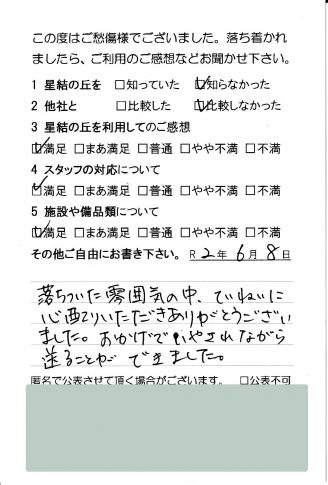 この度はご愁傷様でございました。落ち着かれ
ましたら、ご利用のご感想などお聞かせ下さい。
1 星結の丘を □知っていた ☑知らなかった
2 他社と □比較した ☑比較しなかった
3 星結の丘を利用してのご感想
☑満足 □まあ満足 □普通 □やや不満 □不満
4 スタッフの対応について
☑満足 □まあ満足 □普通 □やや不満 □不満
5 施設や備品類について
☑満足 □まあ満足 □普通 □やや不満 □不満
その他ご自由にお書き下さい。R 2年 6月 8日
落ちついた雰囲気の中、ていねいに
心配りいただきありがとうござい
ました。おかげでいやされながら
送ることができました。
匿名で公表させて頂く場合がございます。 □公表不可